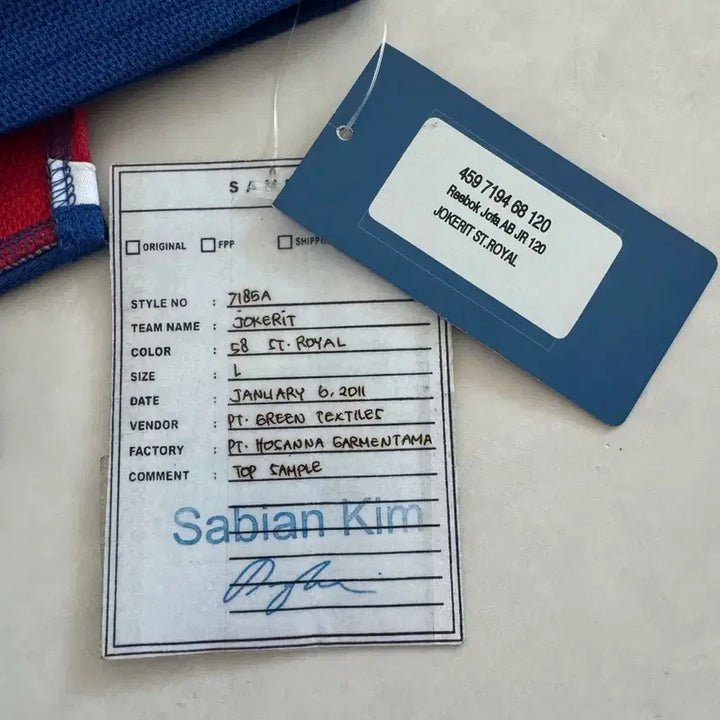 459 7194 68 120
Reebok Jofa AB JR 120
JOKERIT ST.ROYAL
ORIGINAL FPP
STYLE NO : 7185A
TEAM NAME : JOKERIT
COLOR : 58 ST. ROYAL
SIZE : L
DATE : JANUARY 6, 2011
VENDOR : PT. GREEN TEXTILES
FACTORY : PT. HOSANNA GARMENTAMA
COMMENT : TOP SAMPLE
Sabian Kim